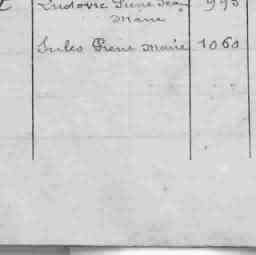 Ludovic Pierre Jean 995
Marie
Jules Pierre Marie 1060